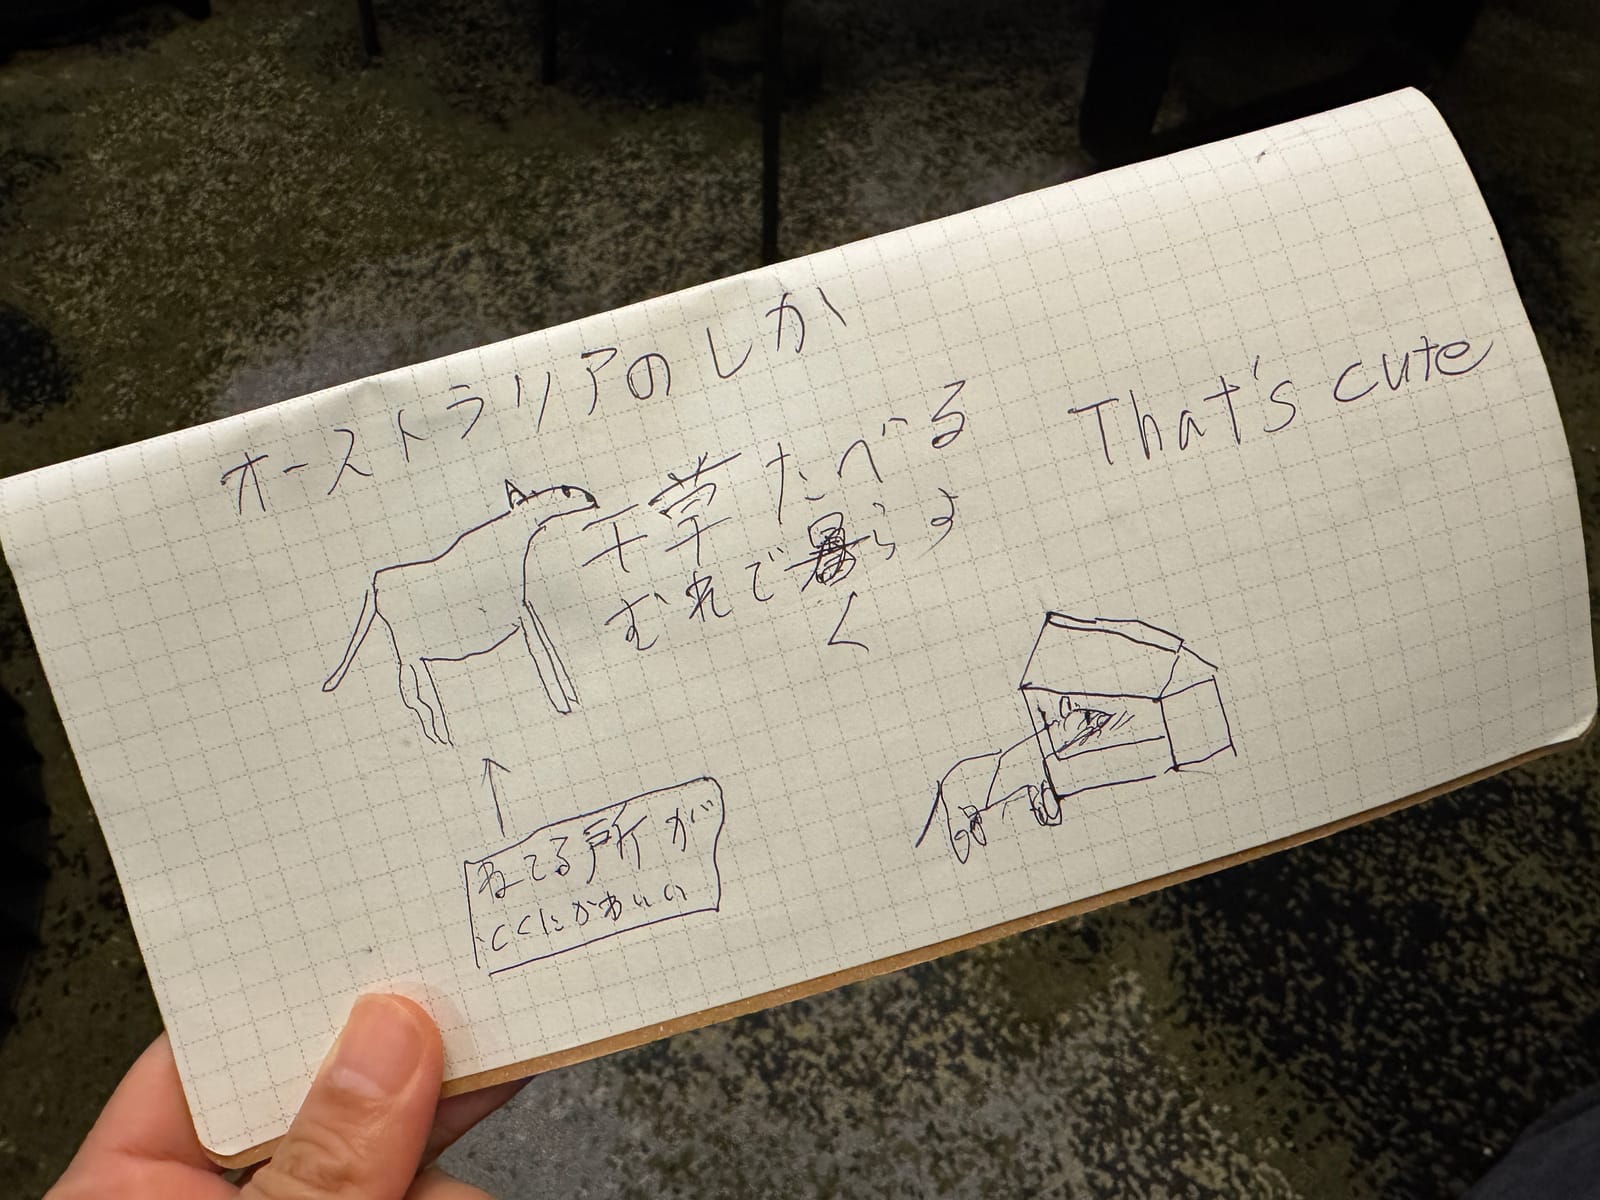 オーストラリアのしか
干草たべる
むれで暮らすよ
く
That's cute
ねてる所が
とくにかわいい